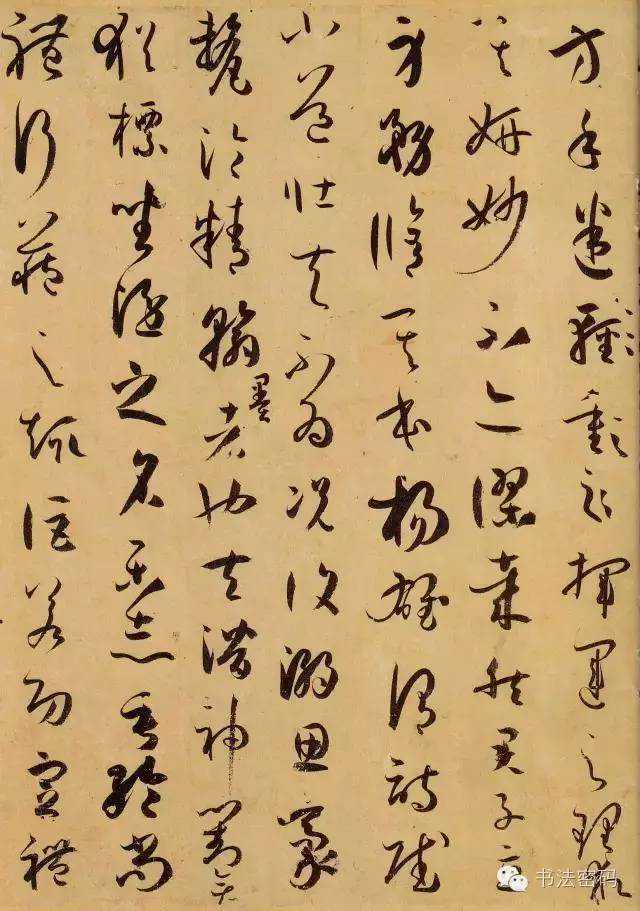 方手迷揮運之理求
其妍妙不亦謬哉然君子立
身務脩其本楊雄謂詩賦
小道壯夫不為況復溺思豪
氂淪精翰墨者也夫潛神對弈
猶標坐隱之名樂志垂綸尚
體行藏之趣詎若功宣禮
书法密码